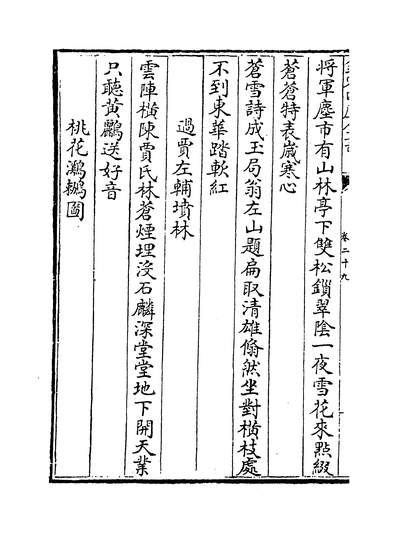 卷二十九
將軍廛市有山林亭下雙松鎖翠陰一夜雪花來點綴
蒼蒼特表嵗寒心
蒼雪詩成玉局翁左山題扁取清雄翛然坐對橫枝處
不到東華踏軟紅
過賈左輔墳林
雲陣橫陳賈氏林蒼煙埋没石麟深堂堂地下開天業
只聽黃鸝送好音
桃花鸂鶒圖